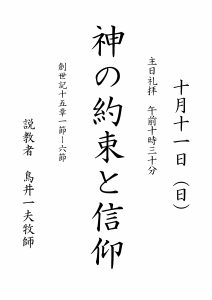 十月十一日（日）
主日礼拝　午前十時三十分
神の約束と信仰
創世記十五章一節ー六節
説教者　鳥井一夫牧師